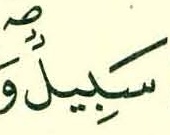 سَبِيلٌۖ وَ